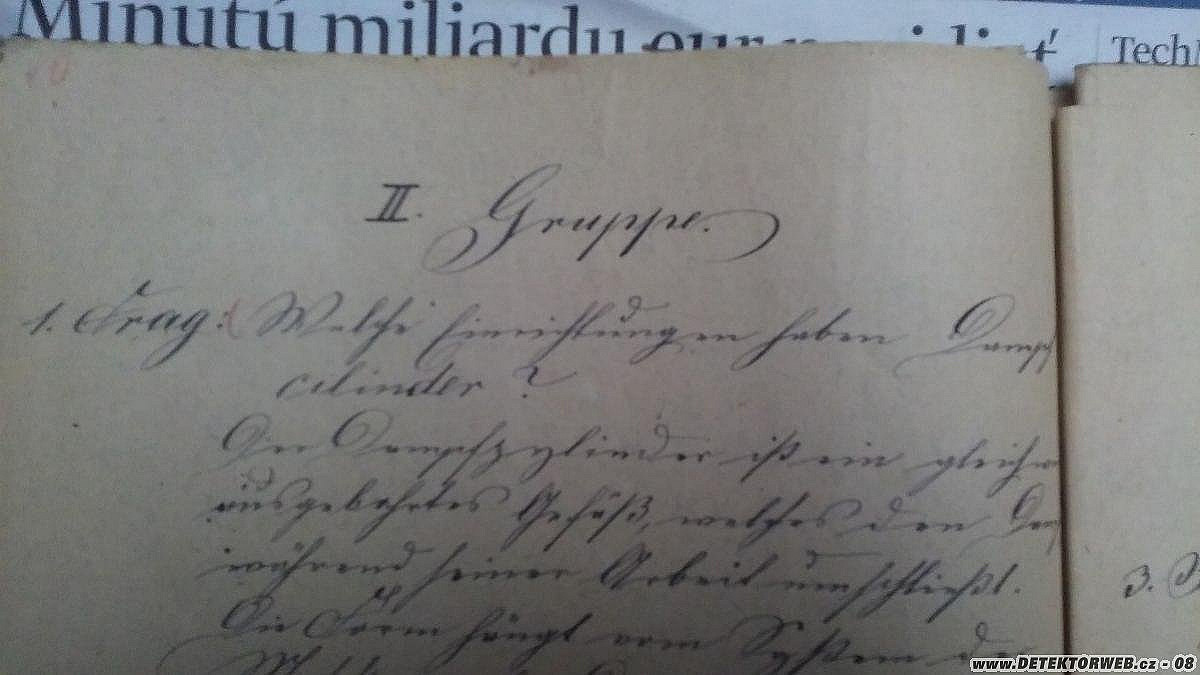 Minútú miliardu eur
Tech
II. Gruppe.
1. Frag: Welche Einrichtungen haben Dampf
cilinder ?
Der Dampfzylinder ist ein gleich
ausgebohrtes Gefäß, welches den
während seiner Arbeit umschließt.
Die Form hängt vom System der
3.
www.DETEKTORWEB.cz - 08